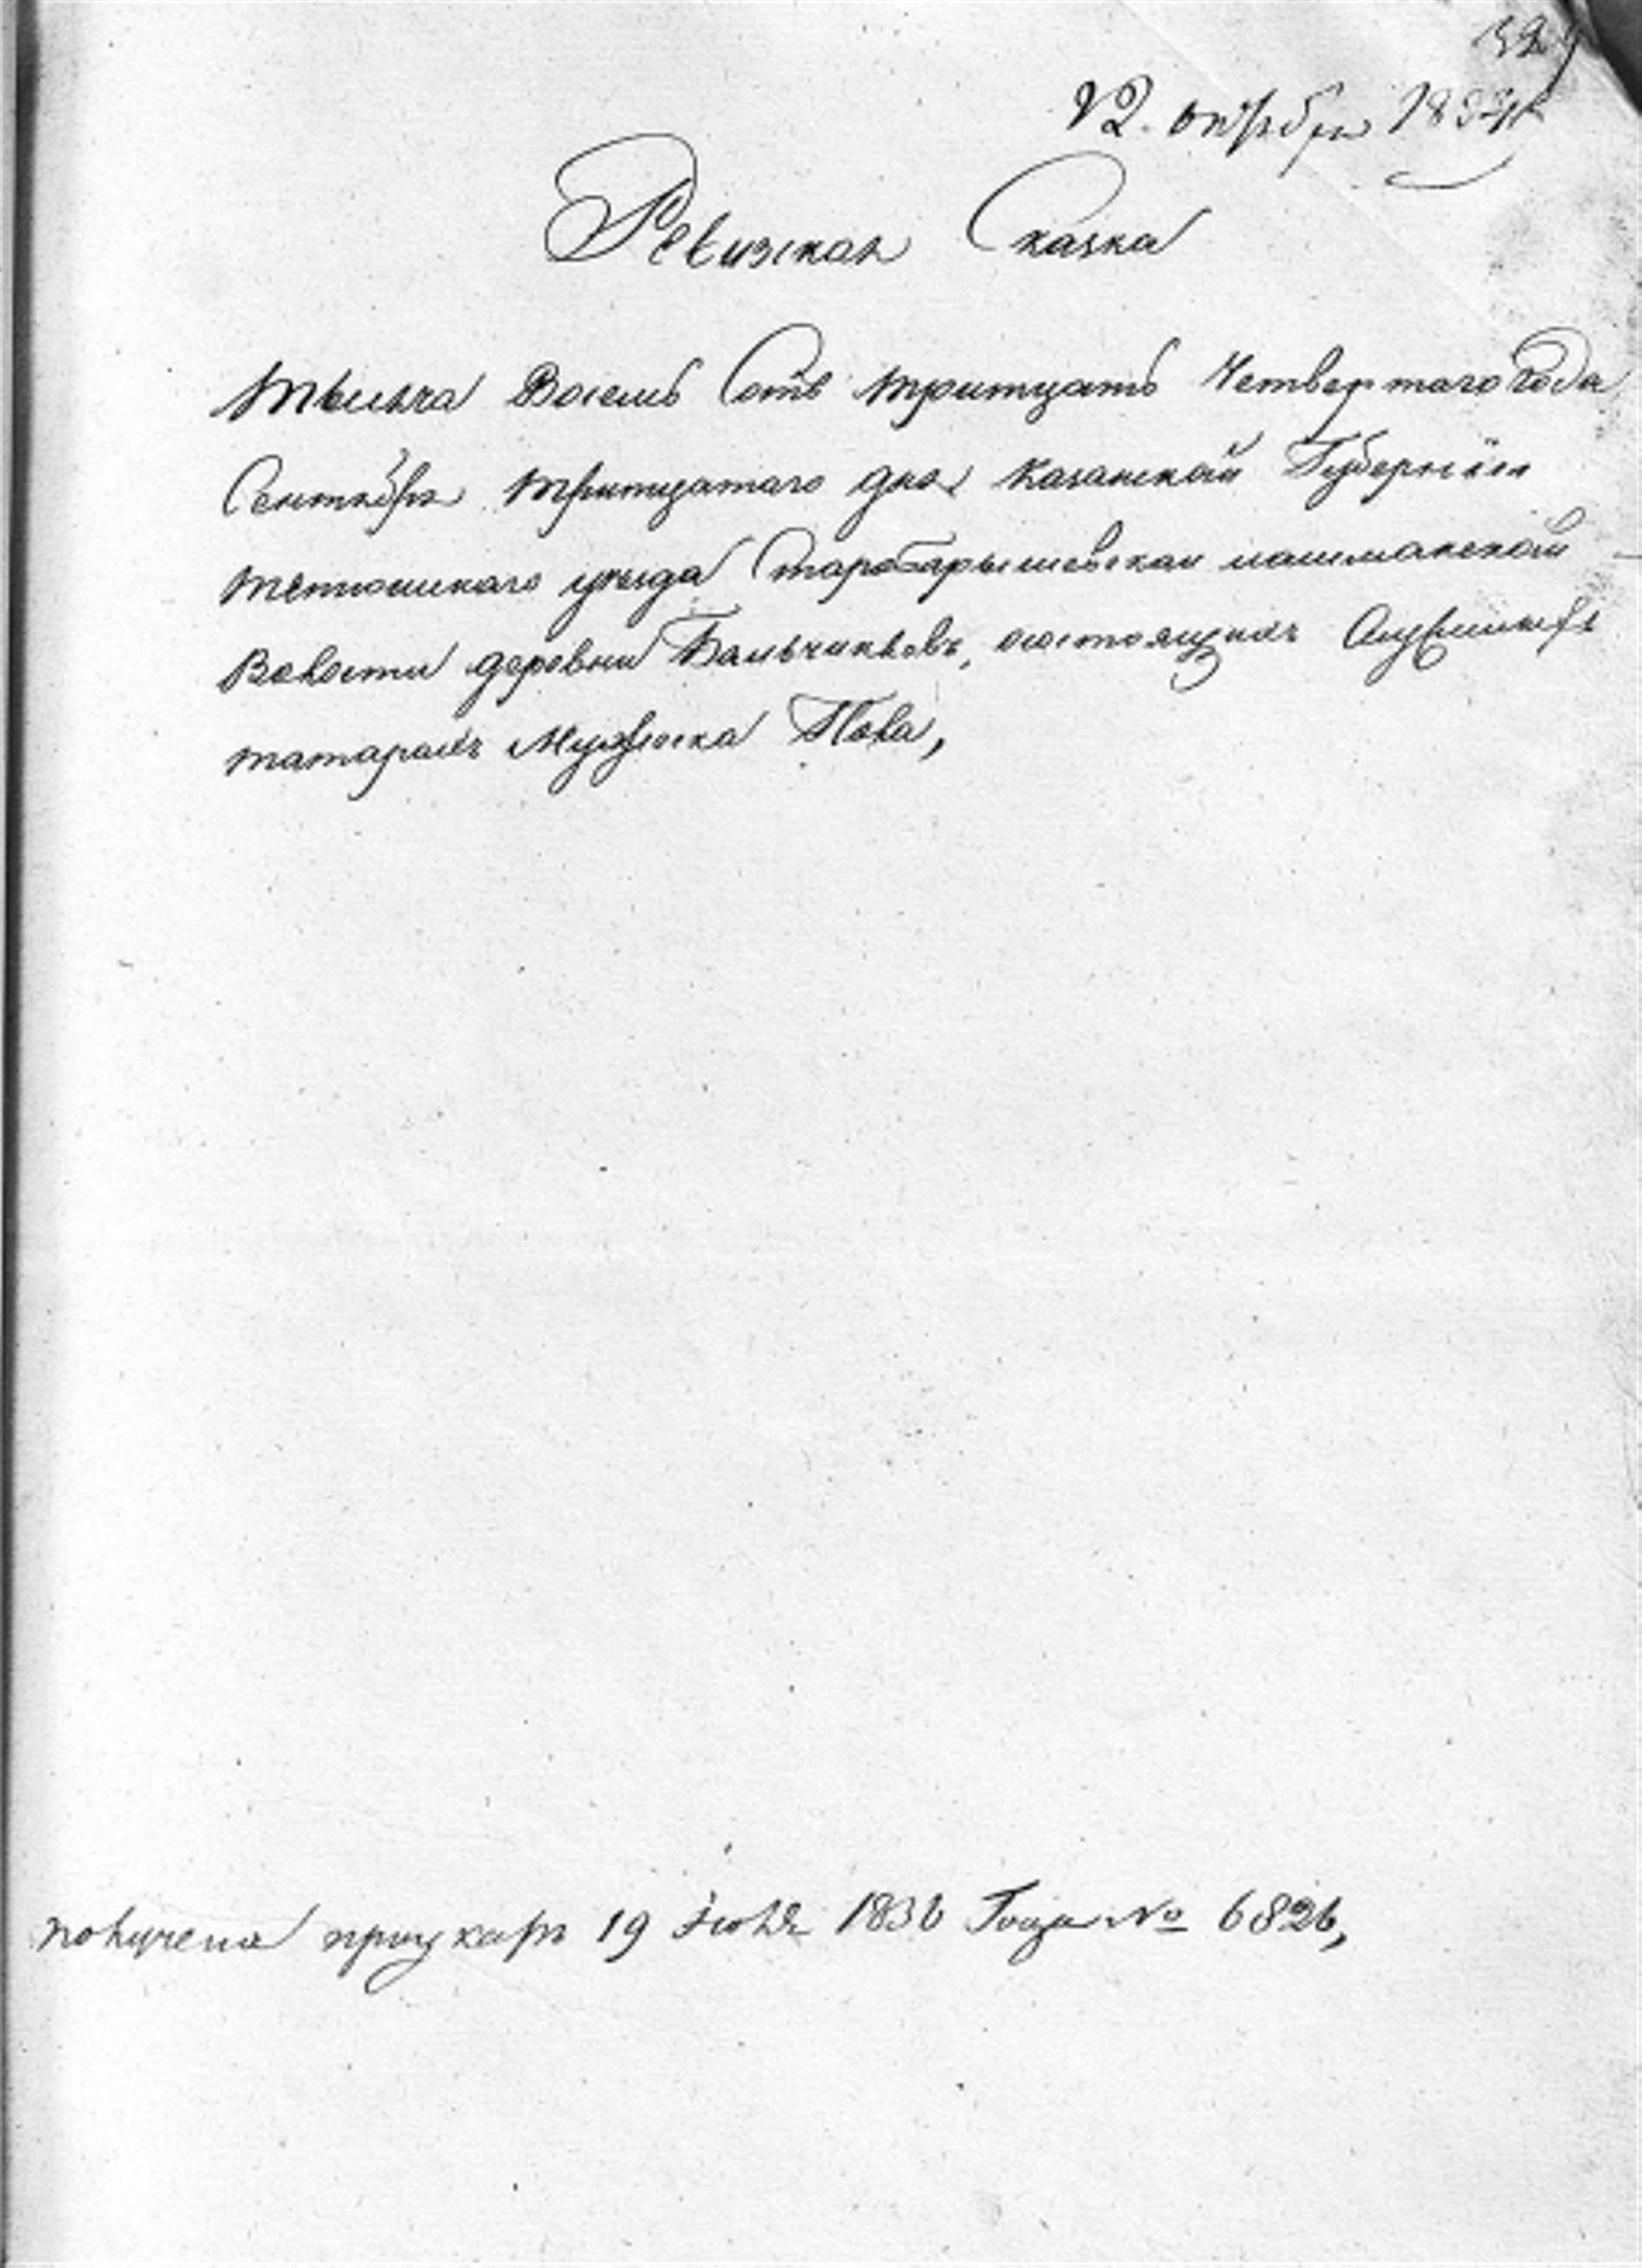 12. октября 1834
Ревизская Сказка
тысяча Восемь Сотъ тритцать Четвертаго года
Сентября тритцатаго дня Казанской Губернiи
тетюшскаго уезда Старобарышевской лашманской
Волости деревни состоящихъ
татарахъ Мужеска Пола,
получена при указе 19 Iюля 1836 Года № 6826,